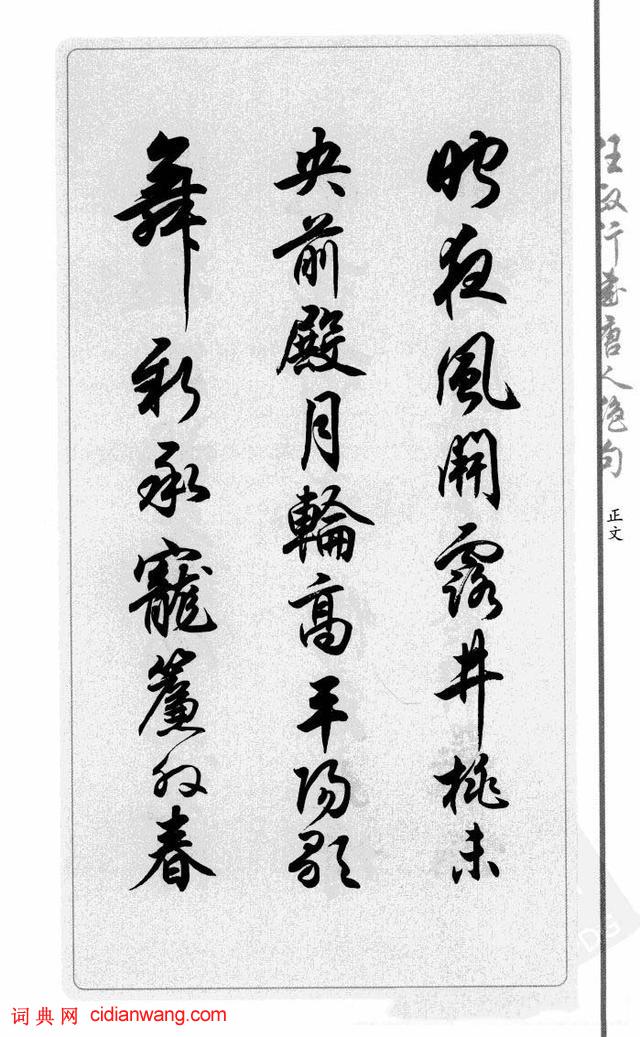 昨夜風開露井桃未
央前殿月輪高平陽歌
舞新承寵簾外春
行書唐人絕句
正文
词典网 cidianwang.com